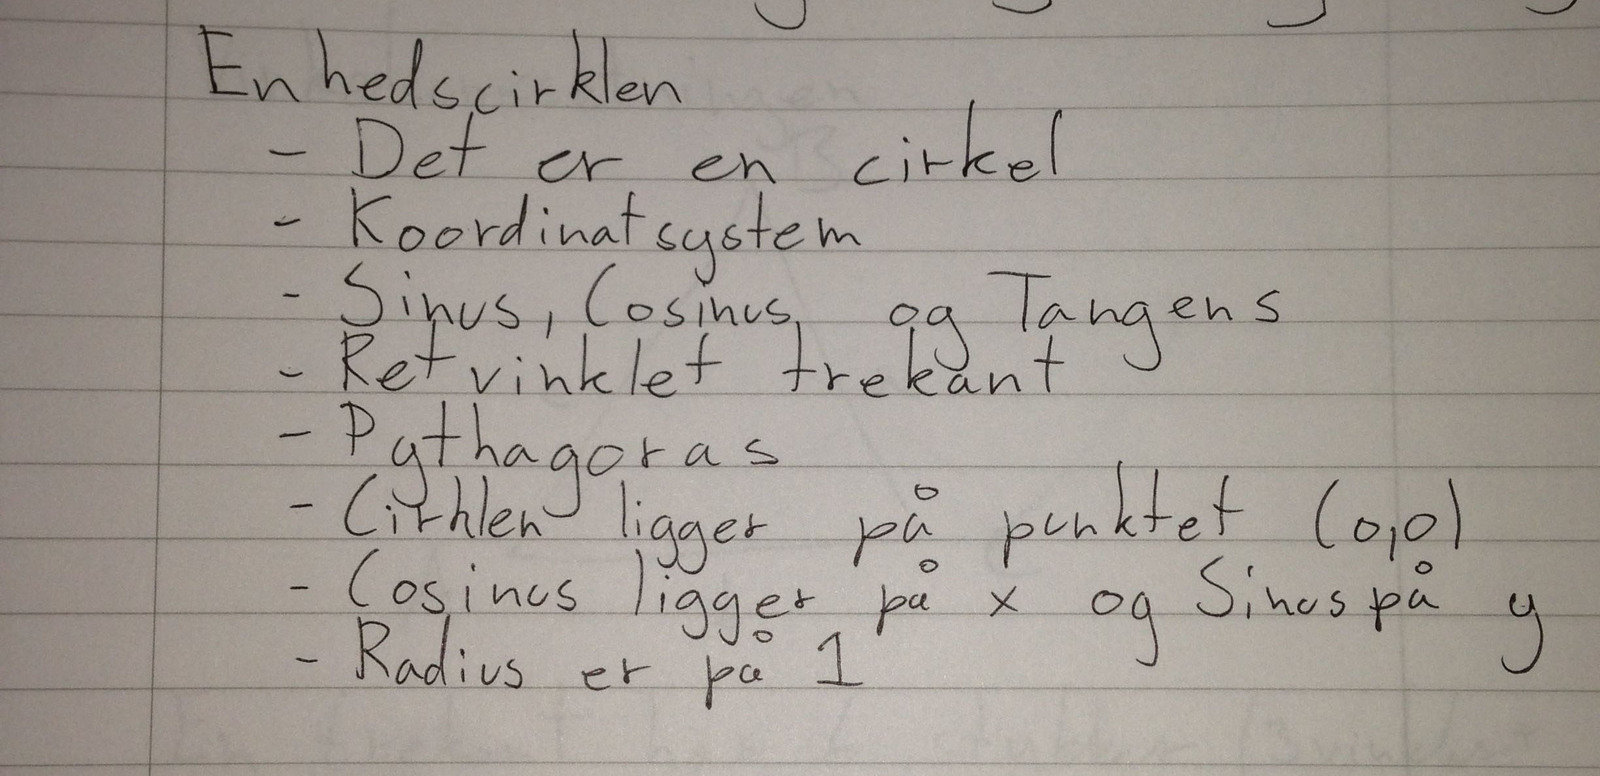 Enhedscirklen
- Det er en cirkel
- Koordinatsystem
- Sinus, Cosinus, og Tangens
- Retvinklet trekant
- Pythagoras
- Cirklen ligger på punktet (0,0)
- Cosinus ligger på x og Sinus på y
- Radius er på 1